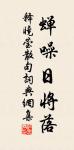 蟬噪日將落
釋曉瑩散句詞典網集